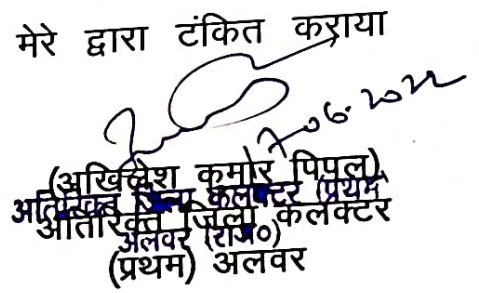 मेरे द्वारा टंकित कराया
17-06-2022
(अखिलेश कुमार पिपल)
अतिरिक्त जिला कलक्टर (प्रथम)
अतिरिक्त जिला कलक्टर
अलवर (राज०)
(प्रथम) अलवर